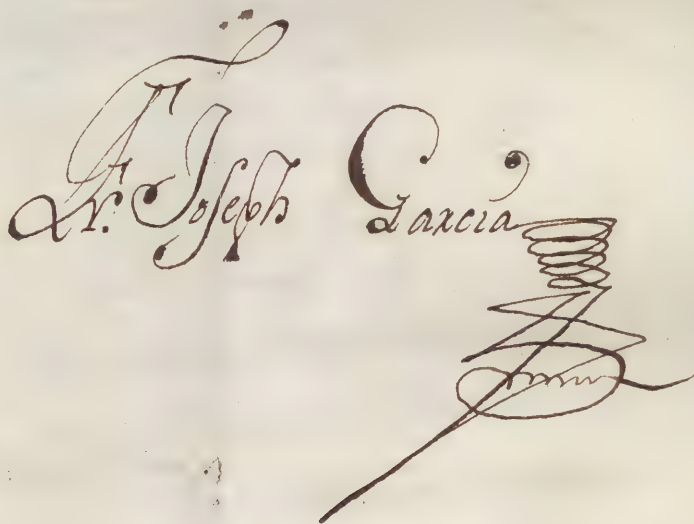 Fr. Joseph Garcia